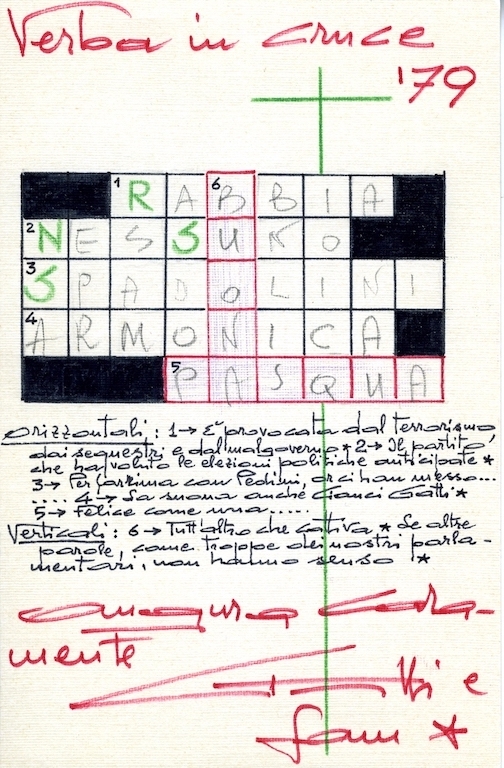 Verba in cruce
'79
1 R A 6 B B I A
2 N E S S U N O
3 S P A D O L I N I
4 A R M O N I C A
5 P A S Q U A
Orizzontali: 1→ E' provocata dal terrorismo
dai sequestri e dal malgoverno * 2→ Il partito
che ha voluto le elezioni politiche anticipate *
3→ Per farrima con Pedini, or ci han messo...
.... 4→ La suona anche Gianci Gatti *
5→ Felice come una.....
Verticali: 6→ Tutt'altro che cattiva * Le altre
parole, come troppe dei nostri parla-
mentari, non hanno senso! *
augura cara-
mente
e
fam *